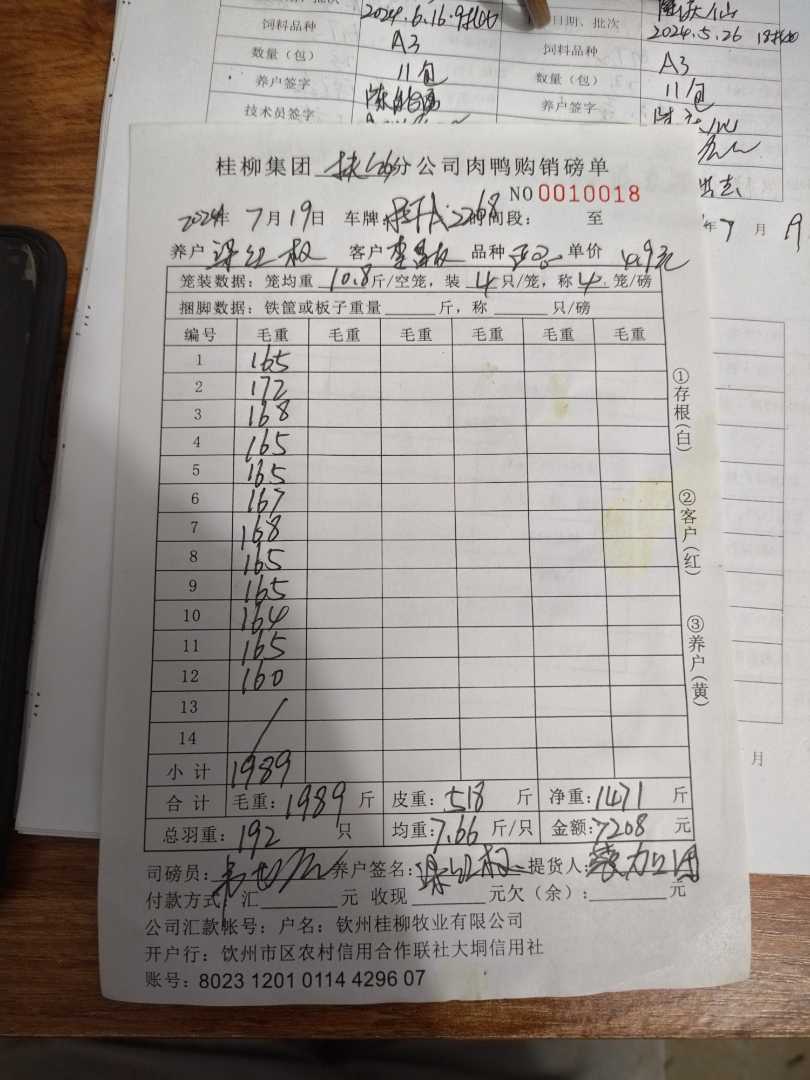 2024.6.16.
日期、批次
2024.5.26
饲料品种 A3
饲料品种 A3
数量（包） 11包
数量（包） 11包
养户签字
养户签字
技术员签字
年7月19
桂柳集团 分公司肉鸭购销磅单
NO 0010018
2024年7月19日 车牌: 2268 时间段: 至
养户 梁红权 客户 李昌权 品种 单价 4.9元
笼装数据: 笼均重 10.8斤/空笼，装 4只/笼，称 4.笼/磅
捆脚数据: 铁筐或板子重量 斤，称 只/磅
编号 毛重 毛重 毛重 毛重 毛重 毛重
1 165
2 172
3 168
4 165
5 165
6 167
7 168
8 165
9 165
10 164
11 165
12 160
13 /
14
小计 1989
合计 毛重: 1989斤 皮重: 518斤 净重: 1471斤
总羽重: 192只 均重: 7.66斤/只 金额: 7208元
司磅员: 养户签名: 梁红权 提货人:
付款方式: 汇 元 收现 元欠（余）: 元
公司汇款帐号: 户名: 钦州桂柳牧业有限公司
开户行: 钦州市区农村信用合作联社大垌信用社
账号: 8023 1201 0114 4296 07
①存根(白)
②客户(红)
③养户(黄)
月